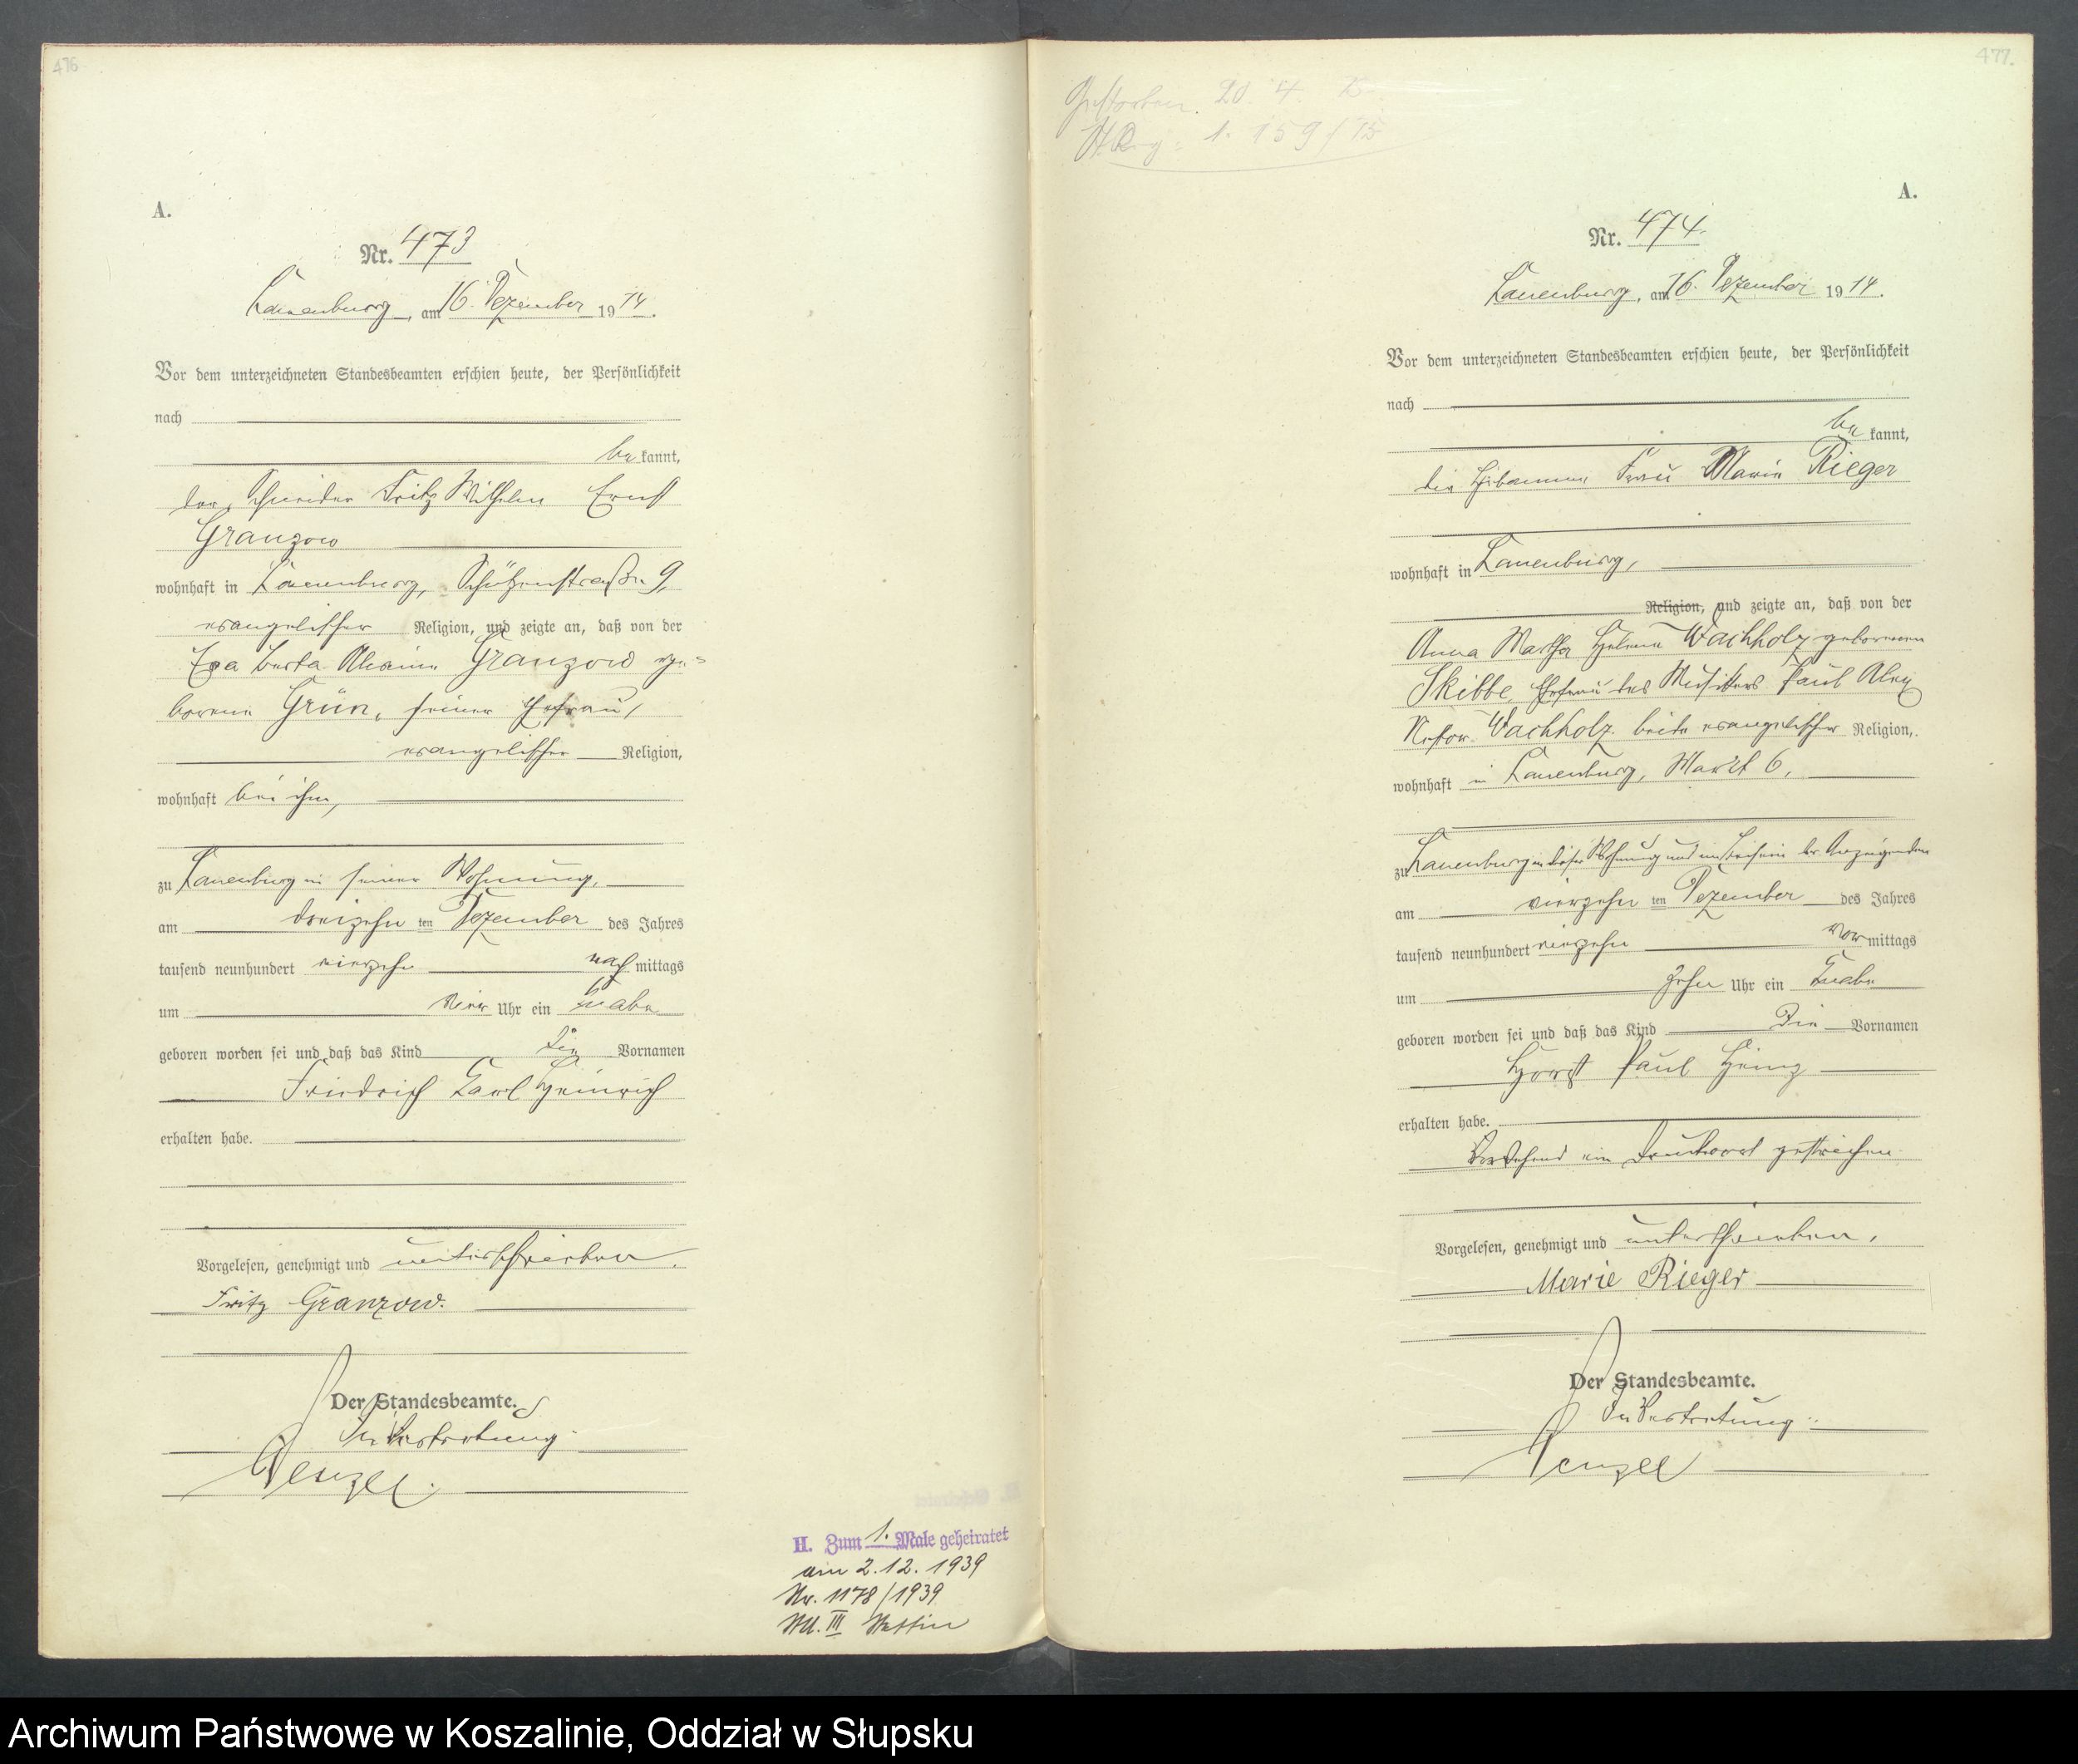 476
A.
Nr. 473
Lauenburg, am 16. Dezember 1914.
Vor dem unterzeichneten Standesbeamten erschien heute, der Persönlichkeit
nach
be kannt,
der Schneider Fritz Wilhelm Ernst
Granzow
wohnhaft in Lauenburg, Schützenstraße 9,
evangelischer Religion, und zeigte an, daß von der
Berta Granzow ge-
borene Grün, seiner Ehefrau,
evangelischer Religion,
wohnhaft bei ihm,
zu Lauenburg in seiner Wohnung,
am dreizehn ten Dezember des Jahres
tausend neunhundert vierzehn nach mittags
um vier Uhr ein Knabe
geboren worden sei und daß das Kind die Vornamen
Friedrich Carl Heinrich
erhalten habe.
Vorgelesen, genehmigt und unterschrieben.
Fritz Granzow.
Der Standesbeamte.
In Vertretung.
Wenzel.
H. Zum 1. Male geheiratet
am 2.12.1939
Nr. 1178/1939
StA. III Stettin
477.
Gestorben. 20. 4. 15
1. 159/15
A.
Nr. 474.
Lauenburg, am 16. Dezember 1914.
Vor dem unterzeichneten Standesbeamten erschien heute, der Persönlichkeit
nach
be kannt,
die Hebamme Frau Marie Rieger
wohnhaft in Lauenburg,
Religion, und zeigte an, daß von der
Anna Martha Helene Wachholz geborenen
Skibbe, Ehefrau des Musikers Paul Alex
Nestor Wachholz beide evangelischer Religion,
wohnhaft in Lauenburg, Markt 6,
zu Lauenburg in dieser Wohnung und im Beisein der Anzeigenden
am vierzehn ten Dezember des Jahres
tausend neunhundert vierzehn vor mittags
um zehn Uhr ein Knabe
geboren worden sei und daß das Kind die Vornamen
Horst Paul Heinz
erhalten habe.
Vorstehend ein Druckwort gestrichen
Vorgelesen, genehmigt und unterschrieben.
Marie Rieger
Der Standesbeamte.
In Vertretung:
Wenzel
Archiwum Państwowe w Koszalinie, Oddział w Słupsku